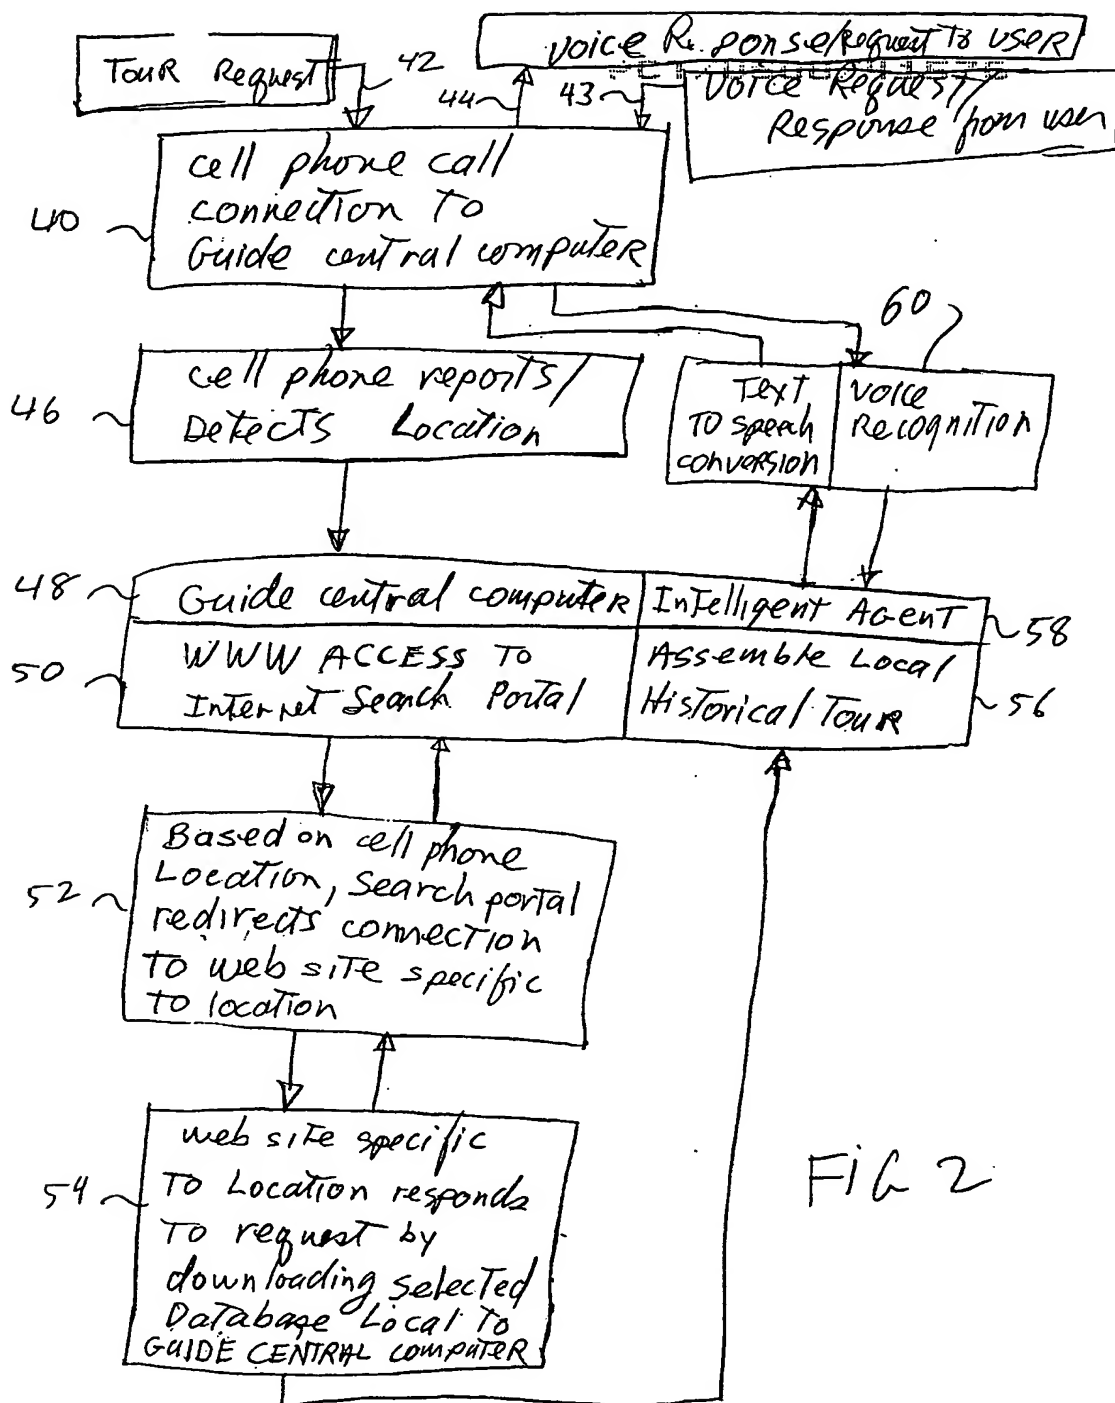 Voice Re.ponse/Request to user
Tour Request
42
44
43
Voice Request/
Response from user
cell phone call
connection to
Guide central computer
40
60
cell phone reports/
Detects Location
46
Text
to speech
conversion
Voice
Recognition
48
Guide central computer
Intelligent Agent
58
50
WWW ACCESS TO
Internet Search Portal
Assemble Local
Historical Tour
56
Based on cell phone
Location, Search portal
redirects connection
to web site specific
to location
52
web site specific
To Location responds
To request by
downloading selected
Database Local To
GUIDE CENTRAL computer
54
FIG 2